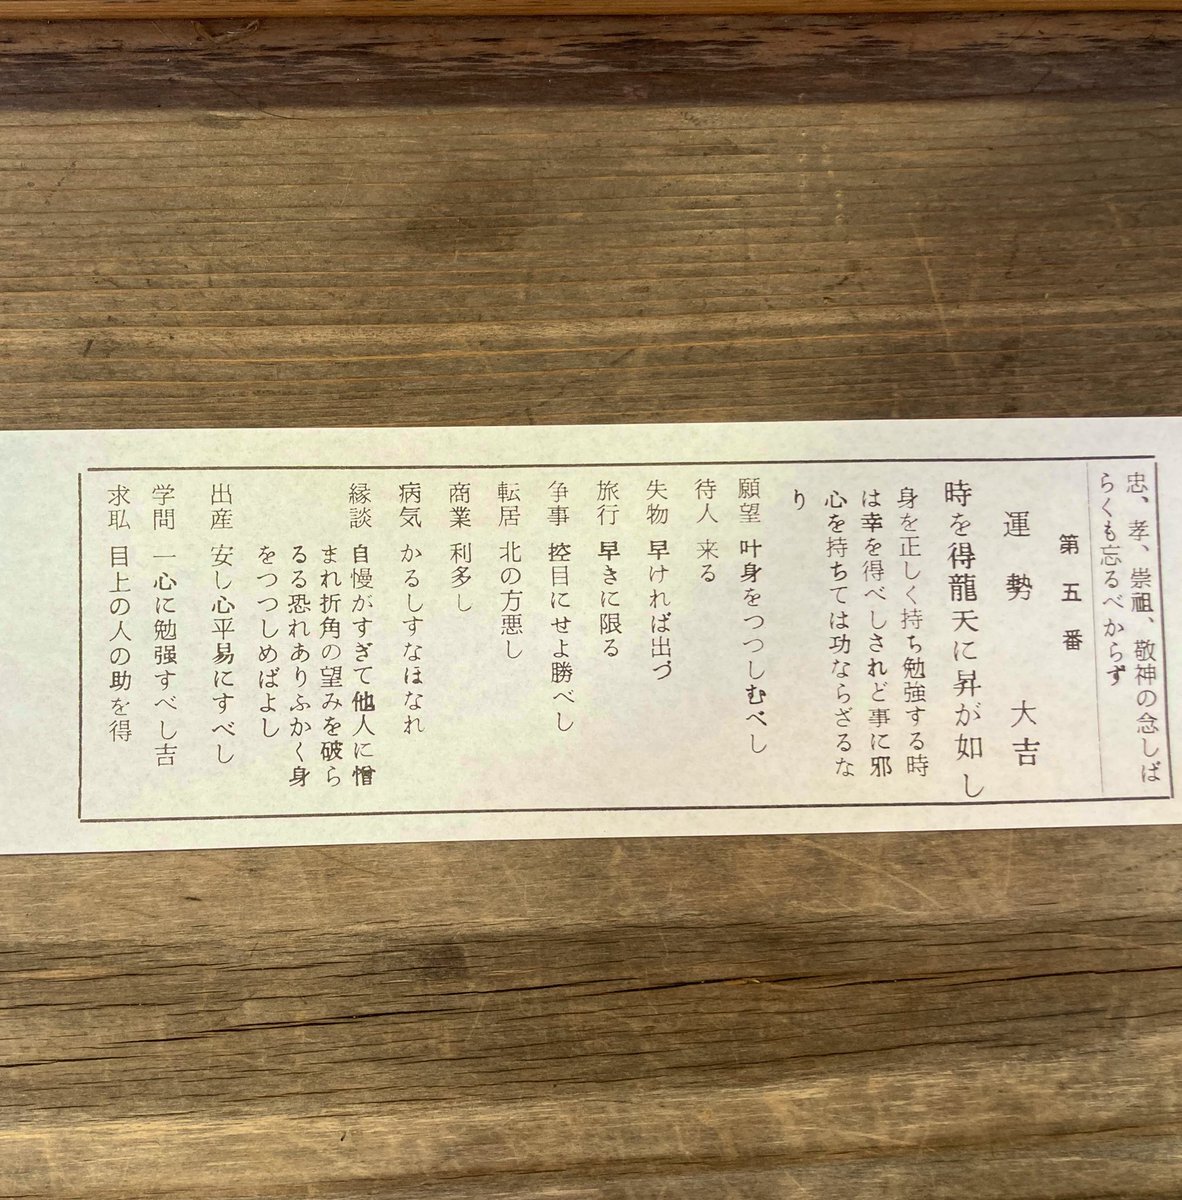 忠、孝、崇祖、敬神の念しば
らくも忘るべからず
第五番
運勢 大吉
時を得龍天に昇が如し
身を正しく持ち勉強する時
は幸を得べしされど事に邪
心を持ちては功ならざるな
り
願望 叶身をつつしむべし
待人 来る
失物 早ければ出づ
旅行 早きに限る
争事 控目にせよ勝べし
転居 北の方悪し
商業 利多し
病気 かるしすなほなれ
縁談 自慢がすぎて他人に憎
まれ折角の望みを破ら
るる恐れありふかく身
をつつしめばよし
出産 安し心平易にすべし
学問 一心に勉强すべし吉
求職 目上の人の助を得